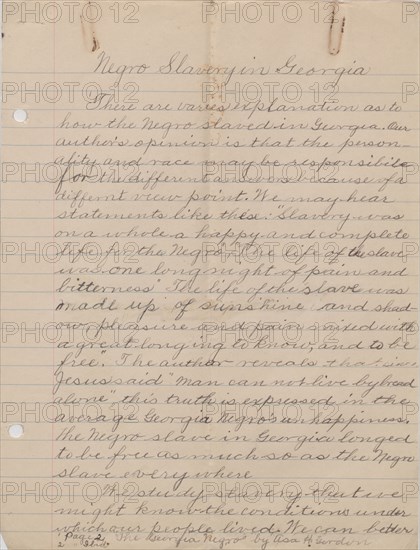 Negro Slavery in Georgia
There are varies explanation as to
how the Negro slaved in Georgia. Our
author's opinion is that the person-
ality and race may be responsibile
for the different answers because of a
differnt view point. We may hear
statements like these: "Slavery was
on a whole a happy and complete
life for the Negro", "The life of the slave
was one long night of pain and
bitterness" "The life of the slave was
made up of sunshine and shad-
ow, pleasure and pain mixed with
a great longing to know, and to be
free". The author reveals that since
Jesus said "Man can not live by bread
alone", this truth is expressed in the
average Georgia Negro's unhappiness.
The Negro slave in Georgia longed
to be free as much so as the Negro
slave everywhere
We study slavery that we
might know the conditions under
which our people lived. We can better
Page 2 "The Georgia Negro" by Asa H. Gordon
2 Ibid